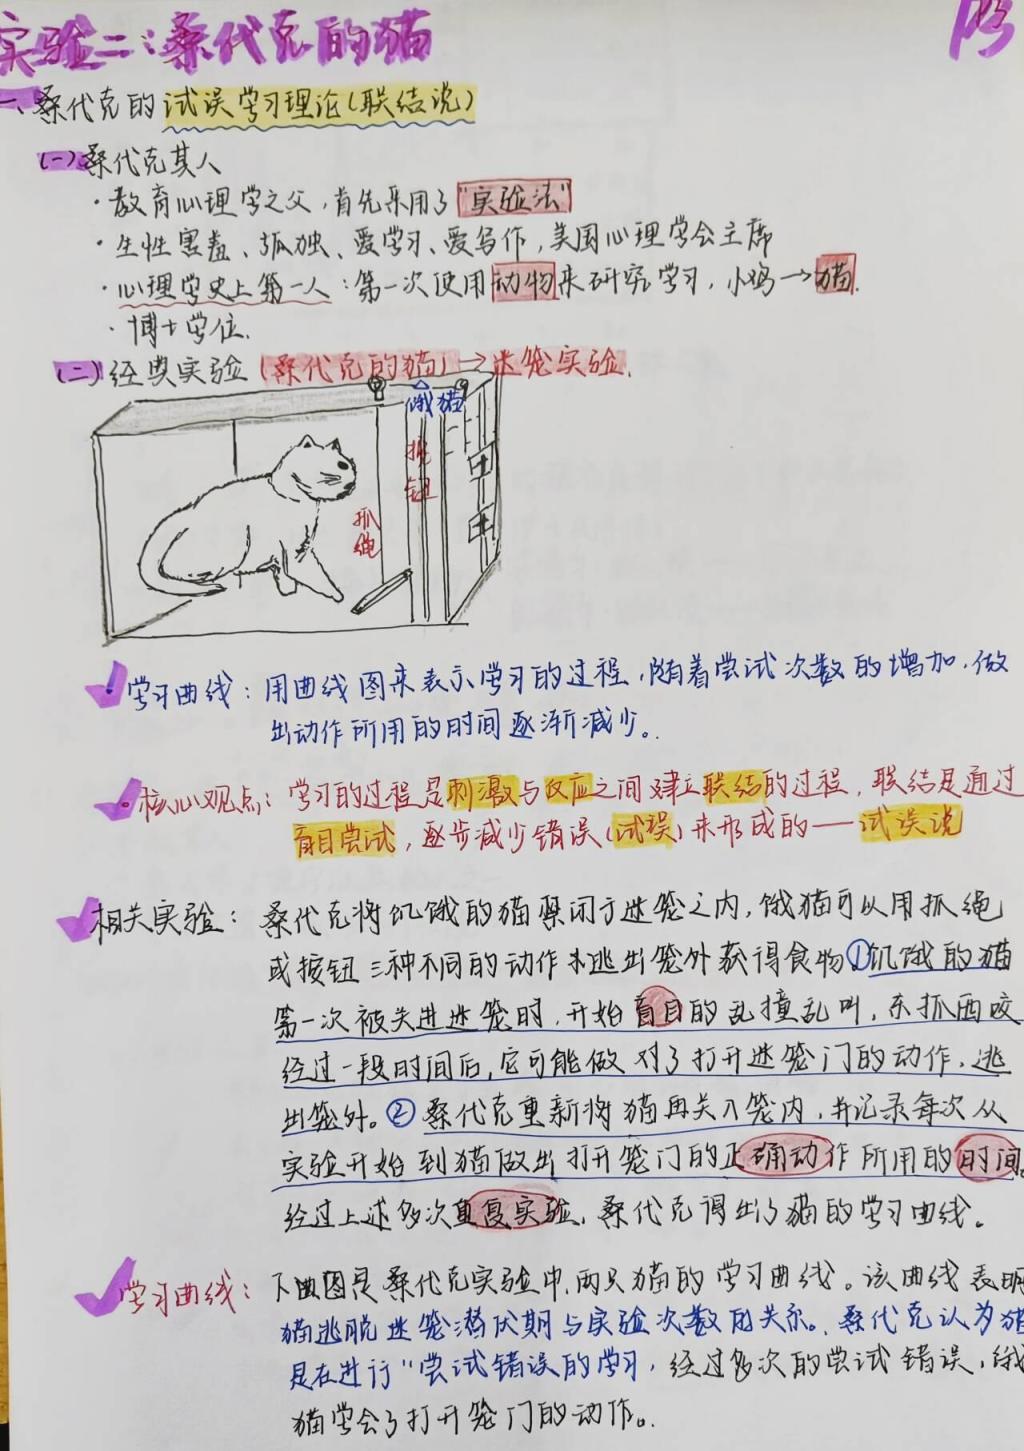 实验二:桑代克的猫
P3
一、桑代克的试误学习理论(联结说)
(一)桑代克其人
·教育心理学之父,首先采用了"实验法"
·生性害羞、孤独、爱学习、爱写作,美国心理学会主席
·心理学史上第一人:第一次使用动物来研究学习,小鸡→猫.
·博士学位.
(二)经典实验(桑代克的猫)→迷笼实验.
饿猫
按钮
抓绳
学习曲线:用曲线图来表示学习的过程,随着尝试次数的增加,做
出动作所用的时间逐渐减少。
·核心观点:学习的过程是刺激与反应之间建立联结的过程,联结是通过
盲目尝试,逐步减少错误(试误)来形成的—试误说
相关实验:桑代克将饥饿的猫禁闭于迷笼之内,饿猫可以用抓绳
或按钮三种不同的动作来逃出笼外获得食物①饥饿的猫
第一次被关进迷笼时,开始盲目的乱撞乱叫,东抓西咬
经过一段时间后,它可能做对了打开迷笼门的动作,逃
出笼外。②桑代克重新将猫再关入笼内,并记录每次从
实验开始到猫做出打开笼门的正确动作所用的时间。
经过上述多次重复实验,桑代克得出了猫的学习曲线。
学习曲线:下曲图是桑代克实验中,两只猫的学习曲线。该曲线表明
猫逃脱迷笼潜伏期与实验次数的关系。桑代克认为猫
是在进行"尝试错误的学习,经过多次的尝试错误,饿
猫学会了打开笼门的动作。